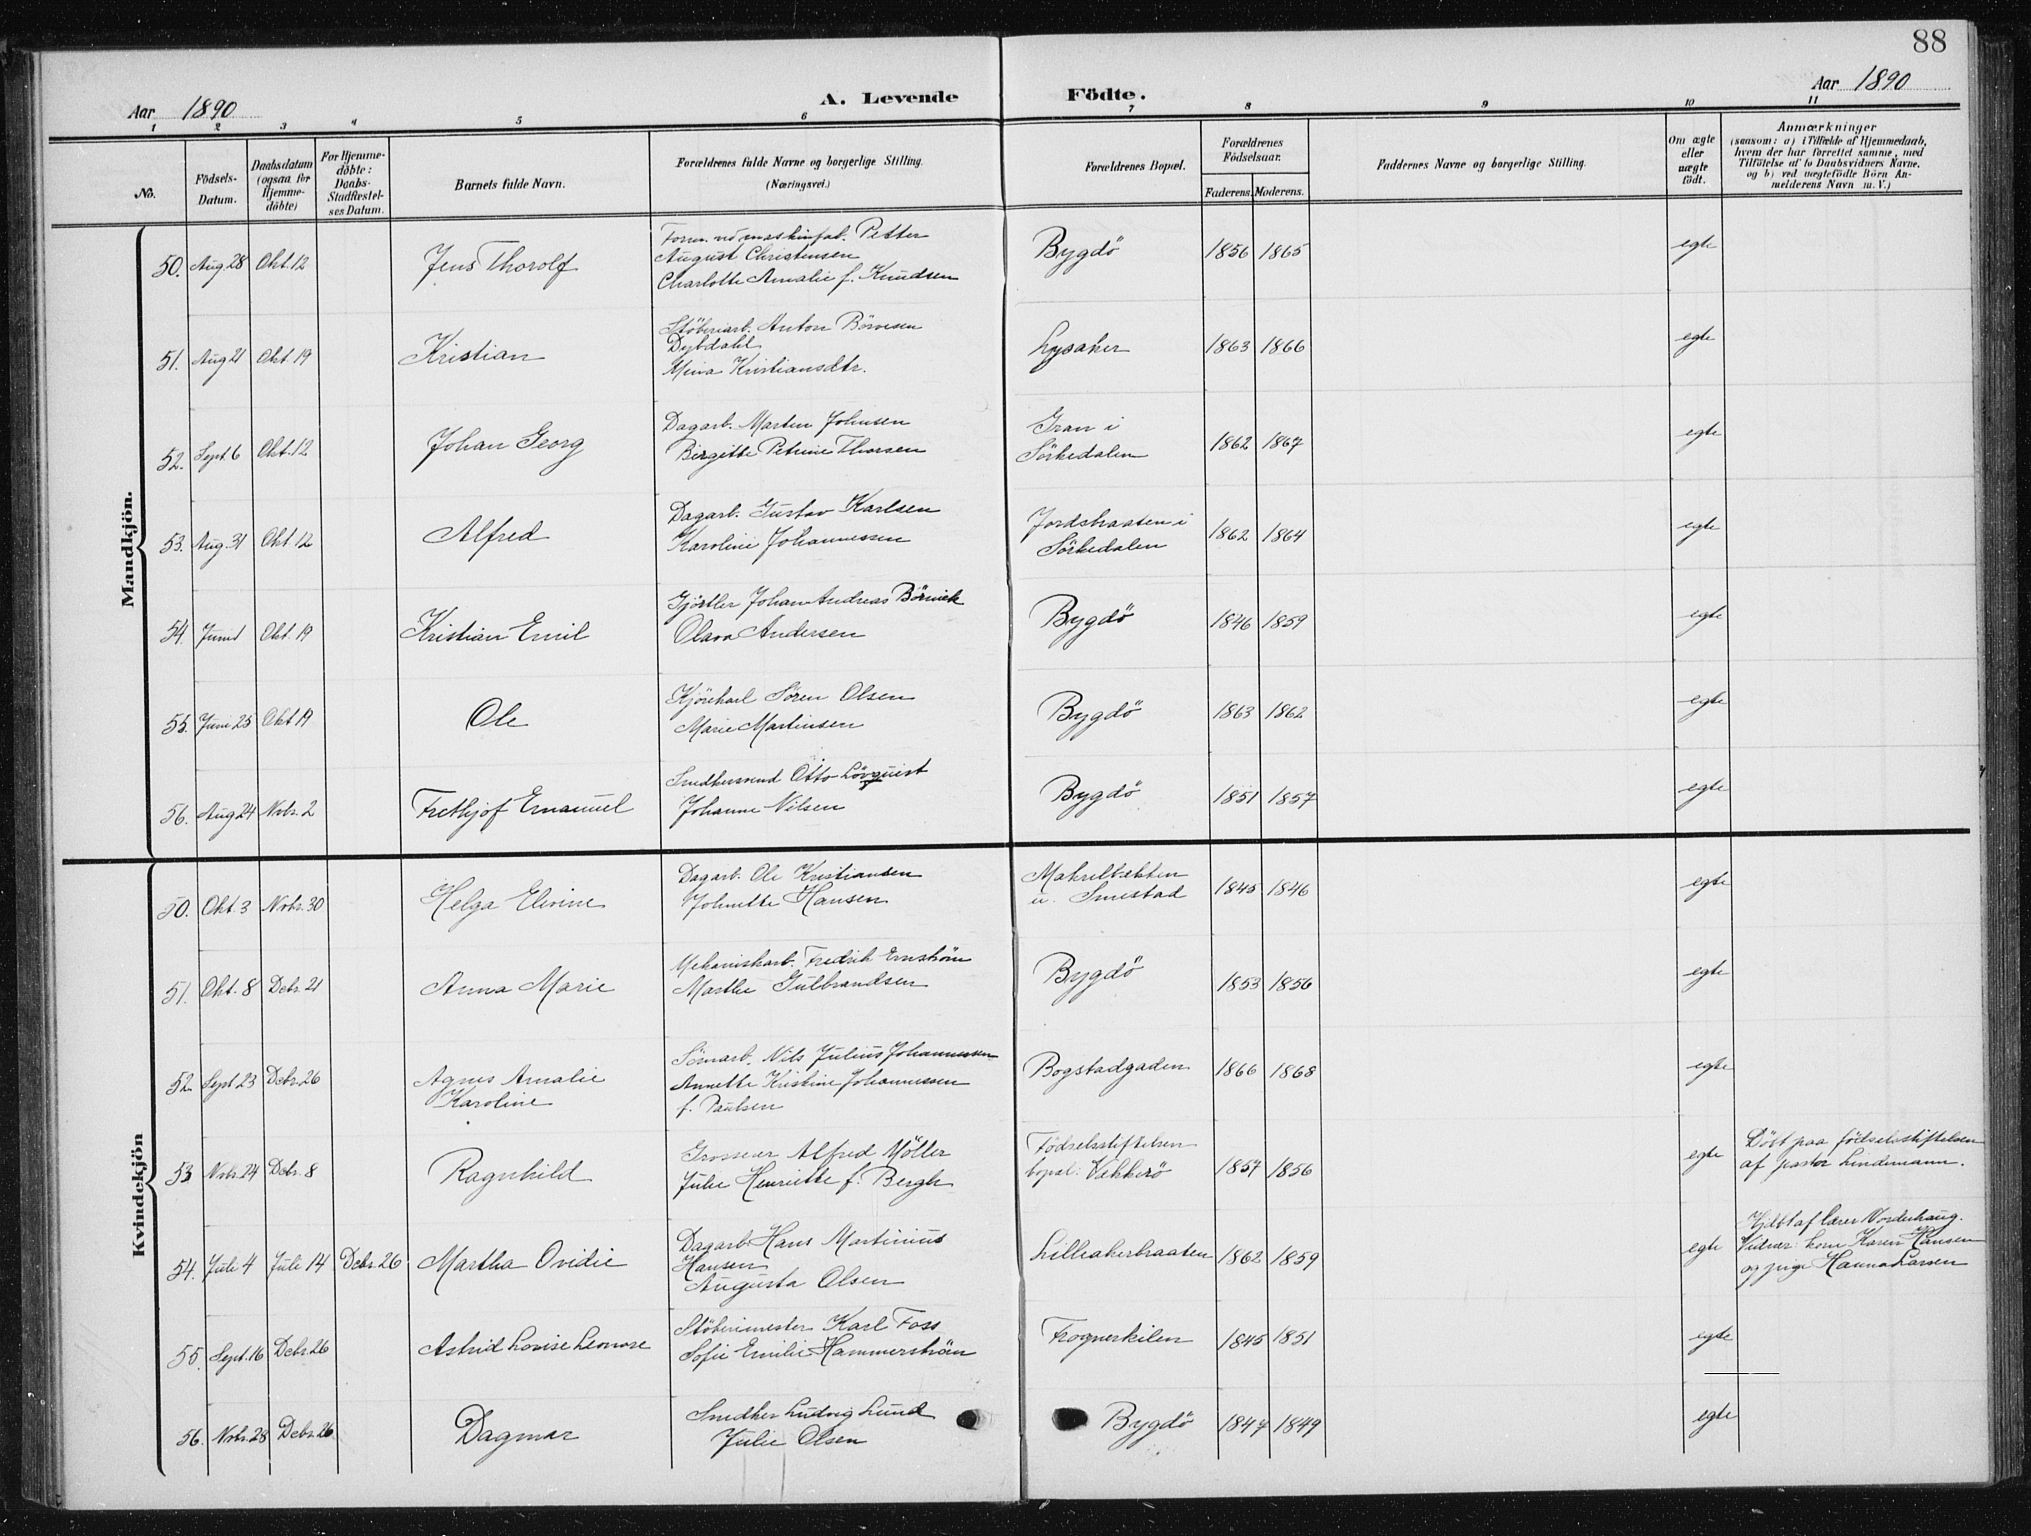 88
Aar 1890 A. Levende Födte. Aar 1890
1 2 3 4 5 6 7 8 9 10 11
No.
Födsels-Datum.
Daabsdatum (ogsaa for Hjemme-döbte)
For Hjemme-döbte: Daabs-Stadfæstel-ses Datum.
Barnets fulde Navn.
Forældrenes fulde Navne og borgerlige Stilling.
(Næringsvei.)
Forældrenes Bopæl.
Forældrenes Födselsaar.
Faderens. Moderens.
Faddernes Navne og borgerlige Stilling.
Om ægte eller uægte födt.
Anmærkninger
(saasom: a) i Tilfælde af Hjemmedaab,
hvem der har forrettet samme, med
Tilföielse af to Daabsvidners Navne,
og b) ved uægtefödte Börn An-
melderens Navn m. V.)
Mandkjön.
50. Aug 28 Okt. 12 Jens Thorolf
Petter
August Christensen
Charlotte Amalie f. Knudsen
Bygdö 1856 1865 egte
51. Aug 21 Okt. 19 Kristian
Stöberiarb. Anton
Dybdahl
Mina Kristiansdtr.
Lysaker 1863 1866 egte
52. Sept. 6 Okt. 12 Johan Georg
Dagarb. Marten Johnsen
Birgitte Petrine Thorsen
Gran i
Sörkedalen
1862 1867 egte
53. Aug. 31 Okt. 12 Alfred
Dagarb. Gustav Karlsen
Karoline Johannessen
Jordsbraaten i
Sörkedalen
1862 1864 egte
54. Okt. 19 Kristian Emil
Gjörtler Johan Andreas
Olava Andersen
Bygdö 1846 1859 egte
55. Juni 25 Okt 19 Ole
Kjörekarl Sören Olsen
Marie Martinsen
Bygdö 1863 1862 egte
56. Aug 24 Novbr. 2 Frethjof Emanuel
Snedkersvend Otto Lövquist
Johanne Nilsen
Bygdö 1851 1857 egte
Kvindekjön
50. Okt. 3 Novbr. 30 Helga Elvine
Dagarb. Ole Kristiansen
Johnette Hansen
Makrelbækken
u. Smestad
1845 1846 egte
51. Okt. 8 Debr. 21 Anna Marie
Mekaniskarb. Fredrik Ernström
Marthe Gulbrandsen
Bygdö 1853 1856 egte
52. Sept 23 Debr. 26 Agnes Amalie
Karoline
Nils Julius Johannessen
Annette Kristine Johannessen
f. Paulsen
Bogstadgaden 1866 1868 egte
53 Novbr. 24 Debr. 8 Ragnhild
Grosserer Alfred Möller
Julie Henriette f. Bergh
Födselsstiftelsen
bopæl: Vækkerö
1857 1856 egte
Döbt paa födselsstiftelsen
af pastor Lindemann.
54. Juli 4 Juli 14 Debr. 26 Martha Ovidie
Dagarb. Hans Martinius
Hansen
Augusta Olsen
Lilleakerbraaten 1862 1859 egte
Hjdbt af lærer Norderhaug.
Vidner: kone Karen Hansen
og pige Hanna Larsen
55. Sept. 16 Debr. 26 Astrid Lovise Leonore
Stöberimester Karl Foss
Sofie Emilie Hammerström
Frognerkilen 1845 1851 egte
56. Novbr. 28 Debr. 26 Dagmar
Snedker Ludvig Lund
Julie Olsen
Bygdö 1847 1849 egte